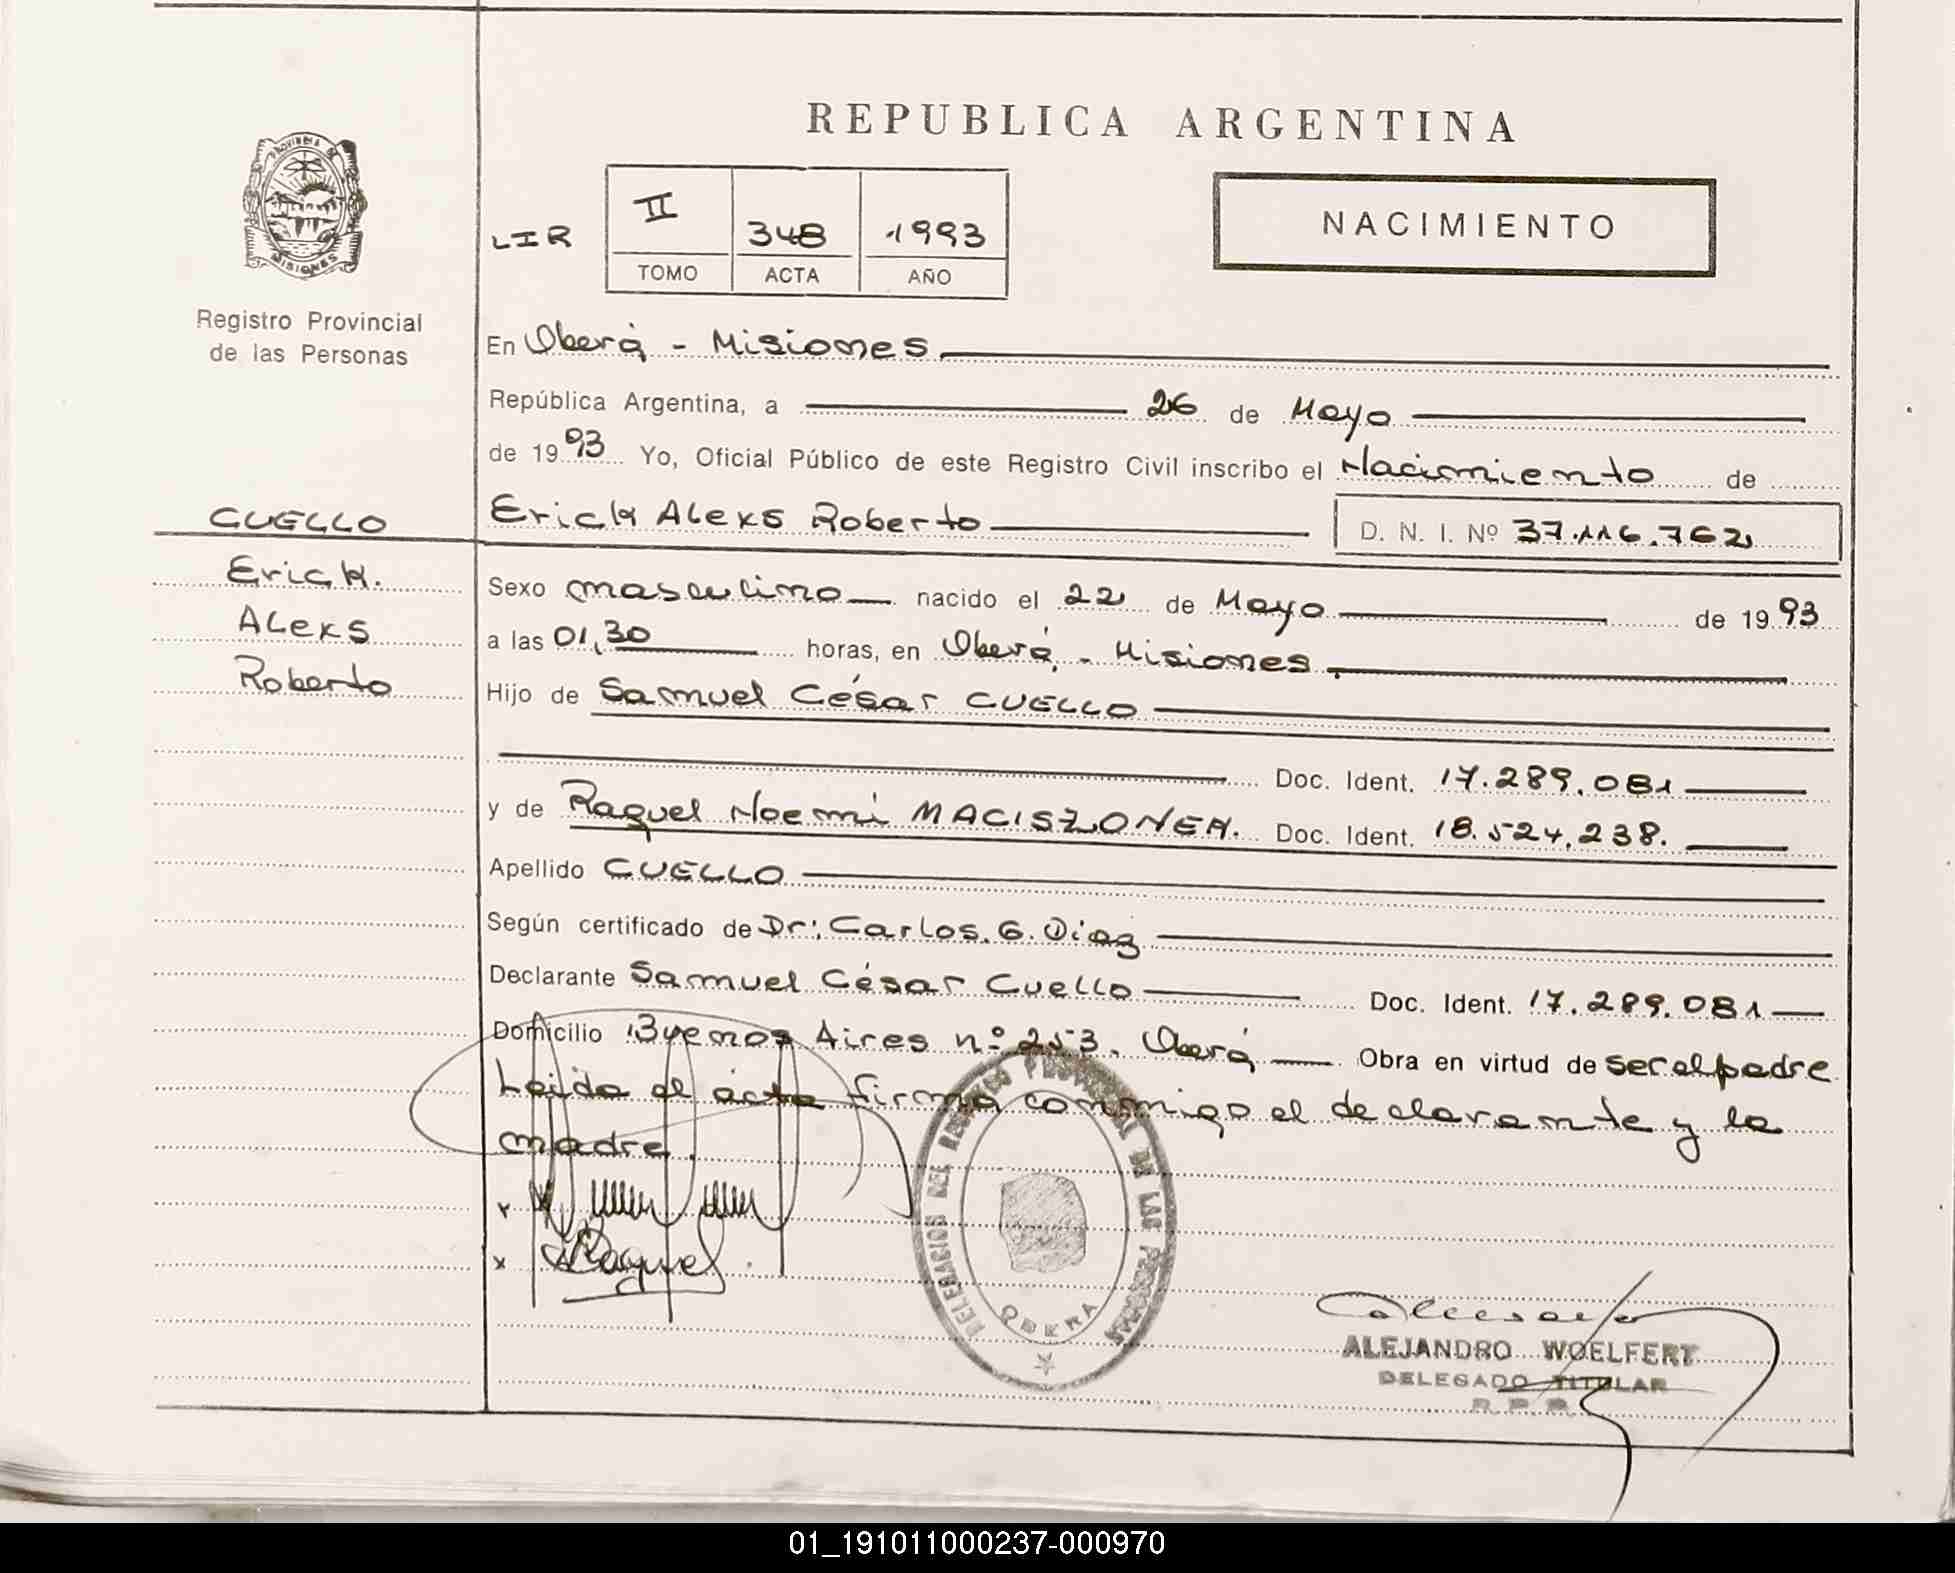 REPUBLICA ARGENTINA
PROVINCIA DE
MISIONES
Registro Provincial
de las Personas
LIR
II 348 1993
TOMO ACTA AÑO
NACIMIENTO
En Oberá - Misiones
República Argentina, a 26 de Mayo
de 1993 Yo, Oficial Público de este Registro Civil inscribo el Nacimiento de
CUELLO
Erick Aleks Roberto D. N. I. Nº 37.116.762
Erick.
Aleks
Roberto
Sexo masculino nacido el 22 de Mayo de 1993
a las 01,30 horas, en Oberá - Misiones
Hijo de Samuel César CUELLO
Doc. Ident. 17.289.081
y de Raquel Noemi Doc. Ident. 18.524.238.
Apellido CUELLO
Según certificado de Dr: Carlos. G. Diaz
Declarante Samuel César Cuello Doc. Ident. 17.289.081
Domicilio Buenos Aires nº 253. Oberá Obra en virtud de ser el padre
Leida el acta firma conmigo el declarante y la
madre.
x
x Raquel
DELEGACION DEL REGISTRO PROVINCIAL DE LAS PERSONAS
OBERA
ALEJANDRO WOELFERT
DELEGADO TITULAR
R. P. P.
01_191011000237-000970